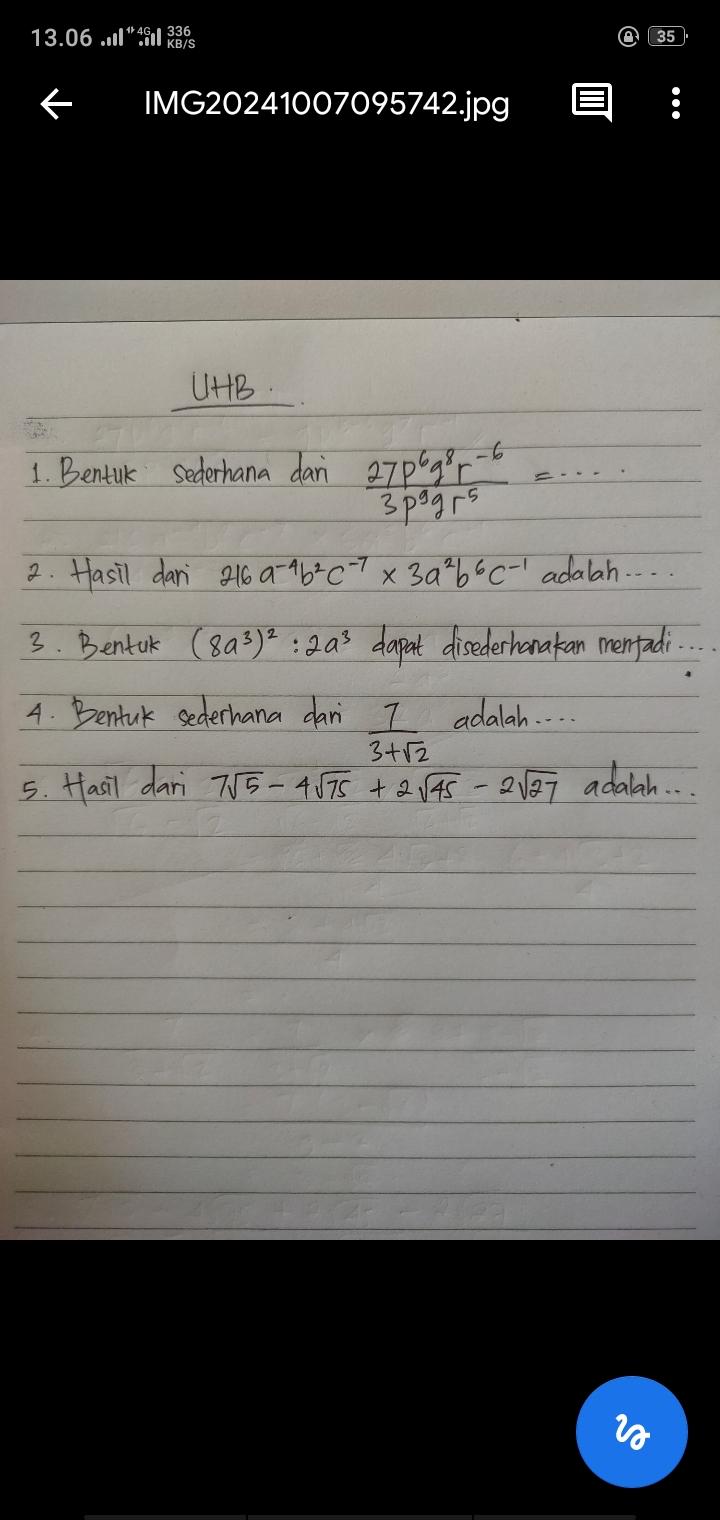 13.06 4G 336 KB/S 35
IMG20241007095742.jpg
UHB.
1. Bentuk sederhana dari 27p⁶q⁸r⁻⁶ / 3p⁹qr⁵ = ....
2. Hasil dari 216 a⁻⁴b²c⁻⁷ × 3a²b⁶c⁻¹ adalah ....
3. Bentuk (8a³)² : 2a³ dapat disederhanakan menjadi ....
4. Bentuk sederhana dari 7 / 3+√2 adalah ....
5. Hasil dari 7√5 - 4√75 + 2√45 - 2√27 adalah ...